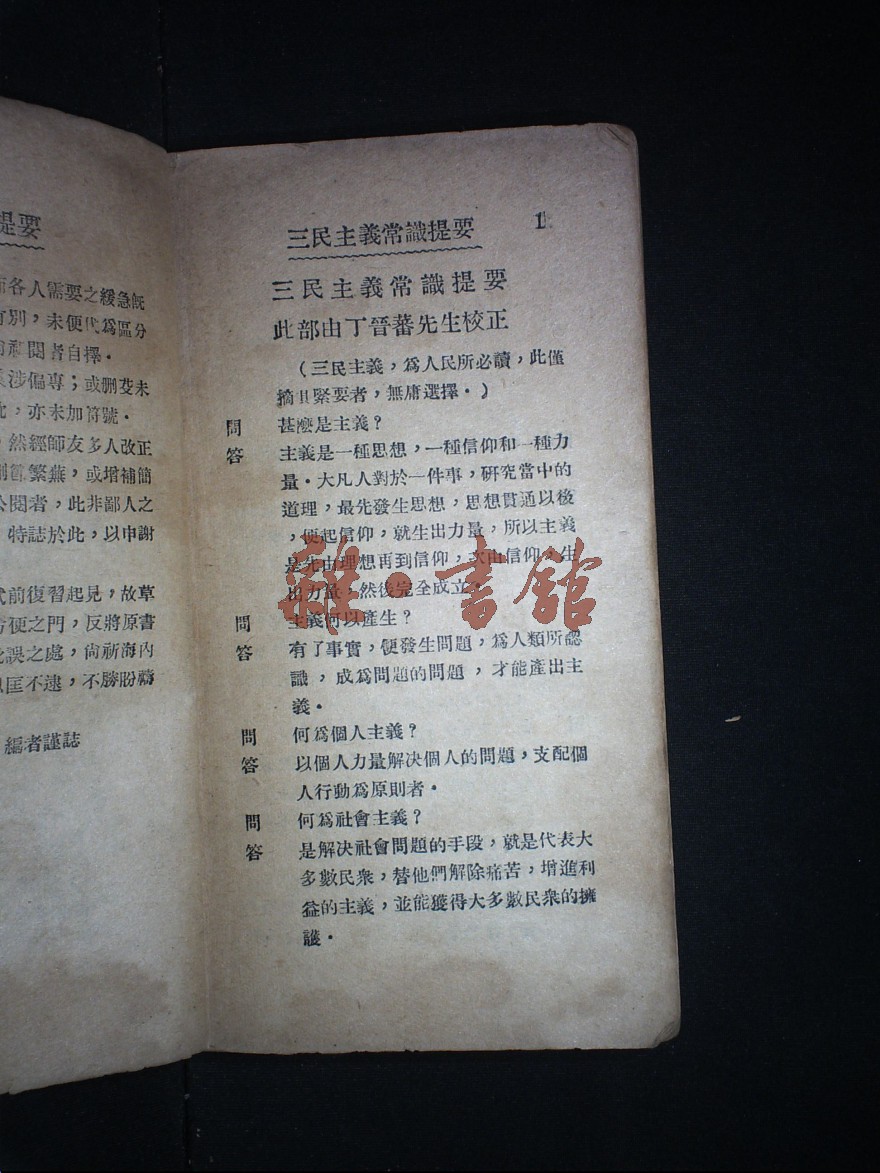 提要
各人需要之緩急旣
有別，未便代爲區分
閱者自擇。
涉偏專；或删芟未
，亦未加符號。
，然經師友多人改正
繁蕪，或增補簡
公閱者，此非鄙人之
特誌於此，以申謝
式前復習起見，故草
方便之門，反將原書
誤之處，尙祈海內
匡不逮，不勝盼禱
編者謹誌
三民主義常識提要 1
三民主義常識提要
此部由丁晉蕃先生校正
（三民主義，爲人民所必讀，此僅
摘其緊要者，無庸選擇。）
問 甚麼是主義？
答 主義是一種思想，一種信仰和一種力
量。大凡人對於一件事，硏究當中的
道理，最先發生思想，思想貫通以後
，便起信仰，就生出力量，所以主義
是先由理想再到信仰，次由信仰，生
出力量，然後完全成立。
問 主義何以產生？
答 有了事實，便發生問題，爲人類所認
識，成爲問題的問題，才能產出主
義。
問 何爲個人主義？
答 以個人力量解决個人的問題，支配個
人行動爲原則者。
問 何爲社會主義？
答 是解决社會問題的手段，就是代表大
多數民衆，替他們解除痛苦，增進利
益的主義，並能獲得大多數民衆的擁
護。
雜·書館